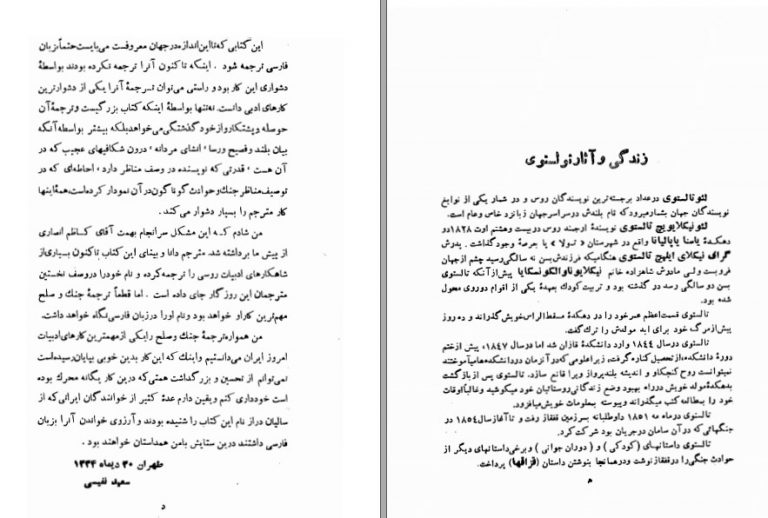 زندگی و آثار تولستوی
لئو تالستوی در عداد برجسته‌ترین نویسندگان روس و در شمار یکی از نوابغ
نویسندگان جهان بشمار میرود که نام بلندش در سراسر جهان زبانزد خاص و عام است.
لئو نیکلایویچ تالستوی نویسندهٔ ارجمند روس در بیست و هشتم اوت ۱۸۲۸ در
دهکدهٔ یاسنا یاپالیانا واقع در شهرستان « تولا » پا بر عرصهٔ وجود گذاشت . پدرش
گراف نیکلای ایلیچ تالستوی هنگامیکه فرزندش بسن نه سالگی رسید چشم از جهان
فروبست ولی مادرش شاهزاده خانم نیکلایونا والکونسکایا پیش از آنکه تالستوی
بسن دو سالگی رسد در گذشته بود و تربیت کودک بعهدهٔ یکی از اقوام دوروی محول
شده بود.
تالستوی قسمت اعظم عمر خود را در دهکدهٔ مسقط الراس خویش گذراند و ده روز
پیش از مرگ خود برای ابد مولدش را ترک گفت.
تالستوی در سال ۱۸۴۴ وارد دانشکدهٔ قازان شد اما در سال ۱۸۴۷، پیش از ختم
دورهٔ دانشکده، از تحصیل کناره گرفت، زیرا علومی که در آن زمان در دانشکده‌ها میآموختند
نمیتوانست روح کنجکاو و اندیشه بلندپرواز ویرا قانع سازد. تالستوی پس از بازگشت
بدهکدهٔ مولد خویش در راه بهبود وضع زندگانی روستائیان خود میکوشید و غالبا اوقات
خود را بمطالعه کتب میگذراند و پیوسته بمعلومات خویش میافزود.
تالستوی در ماه مه ۱۸۵۱ داوطلبانه بسرزمین قفقاز رفت و تا آغاز سال ۱۸۵۴ در
جنگهائی که در آن سامان در جریان بود شرکت کرد.
تالستوی داستانهای ( کودکی ) و ( دوران جوانی ) و برخی داستانهای دیگر از
حوادث جنگی را در قفقاز نوشت و در همانجا بنوشتن داستان (قزاقها) پرداخت.
ه
این کتابی که تا این اندازه در جهان معروفست می‌بایست حتماً بزبان
فارسی ترجمه شود . اینکه تاکنون آنرا ترجمه نکرده بودند بواسطهٔ
دشواری این کار بود و راستی می‌توان ترجمهٔ آنرا یکی از دشوارترین
کارهای ادبی دانست. نه‌تنها بواسطهٔ اینکه کتاب بزرگیست و ترجمهٔ آن
حوصله و پشتکار و از خود گذشتگی می‌خواهد بلکه بیشتر بواسطه آنکه
بیان بلند و فصیح و رسا ، انشای مردانه ، درون شکافیهای عجیب که در
آن هست ، قدرتی که نویسنده در وصف مناظر دارد ، احاطه‌ای که در
توصیف مناظر جنگ و حوادث گوناگون در آن نمودار کرده است، همهٔ اینها
کار مترجم را بسیار دشوار می‌کند .
من شادم که این مشکل سرانجام بهمت آقای کاظم انصاری
از پیش ما برداشته شد. مترجم دانا و بینای این کتاب تاکنون بسیاری از
شاهکارهای ادبیات روسی را ترجمه کرده و نام خود را در وصف نخستین
مترجمان این روزگار جای داده است . اما قطعاً ترجمهٔ جنگ و صلح
مهم‌ترین کار او خواهد بود و نام او را در زبان فارسی نگاه خواهد داشت.
من همواره ترجمهٔ جنگ و صلح را یکی از مهمترین کارهای ادبیات
امروز ایران می‌دانستیم و اینک که این کار بدین خوبی بپایان رسیده است
نمی‌توانم از تحسین و بزرگداشت همتی که درین کار یگانه محرک بوده
است خودداری کنم و یقین دارم عدهٔ کثیر از خوانندگان ایرانی که از
سالیان دراز نام این کتاب را شنیده بودند و آرزوی خواندن آنرا بزبان
فارسی داشتند درین ستایش بامن همداستان خواهند بود .
طهران ۳۰ دیماه ۱۳۳۴
سعید نفیسی
د